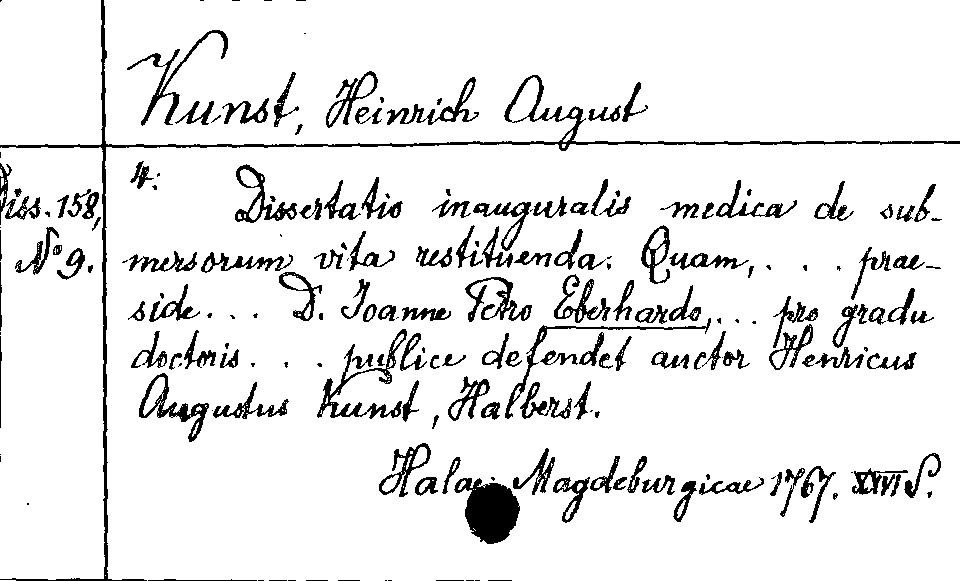 Kunst, Heinrich August
Diss. 158,
No 9.
4.:
Dissertatio inauguralis medica de sub-
mersorum vita restituenda. Quam, . . . prae-
side . . . D. Ioanne Petro Eberhardo, . . . pro gradu
doctoris . . . publice defendet auctor Henricus
Augustus Kunst, Halberst.
Halae Magdeburgicae 1767. XXVI S.